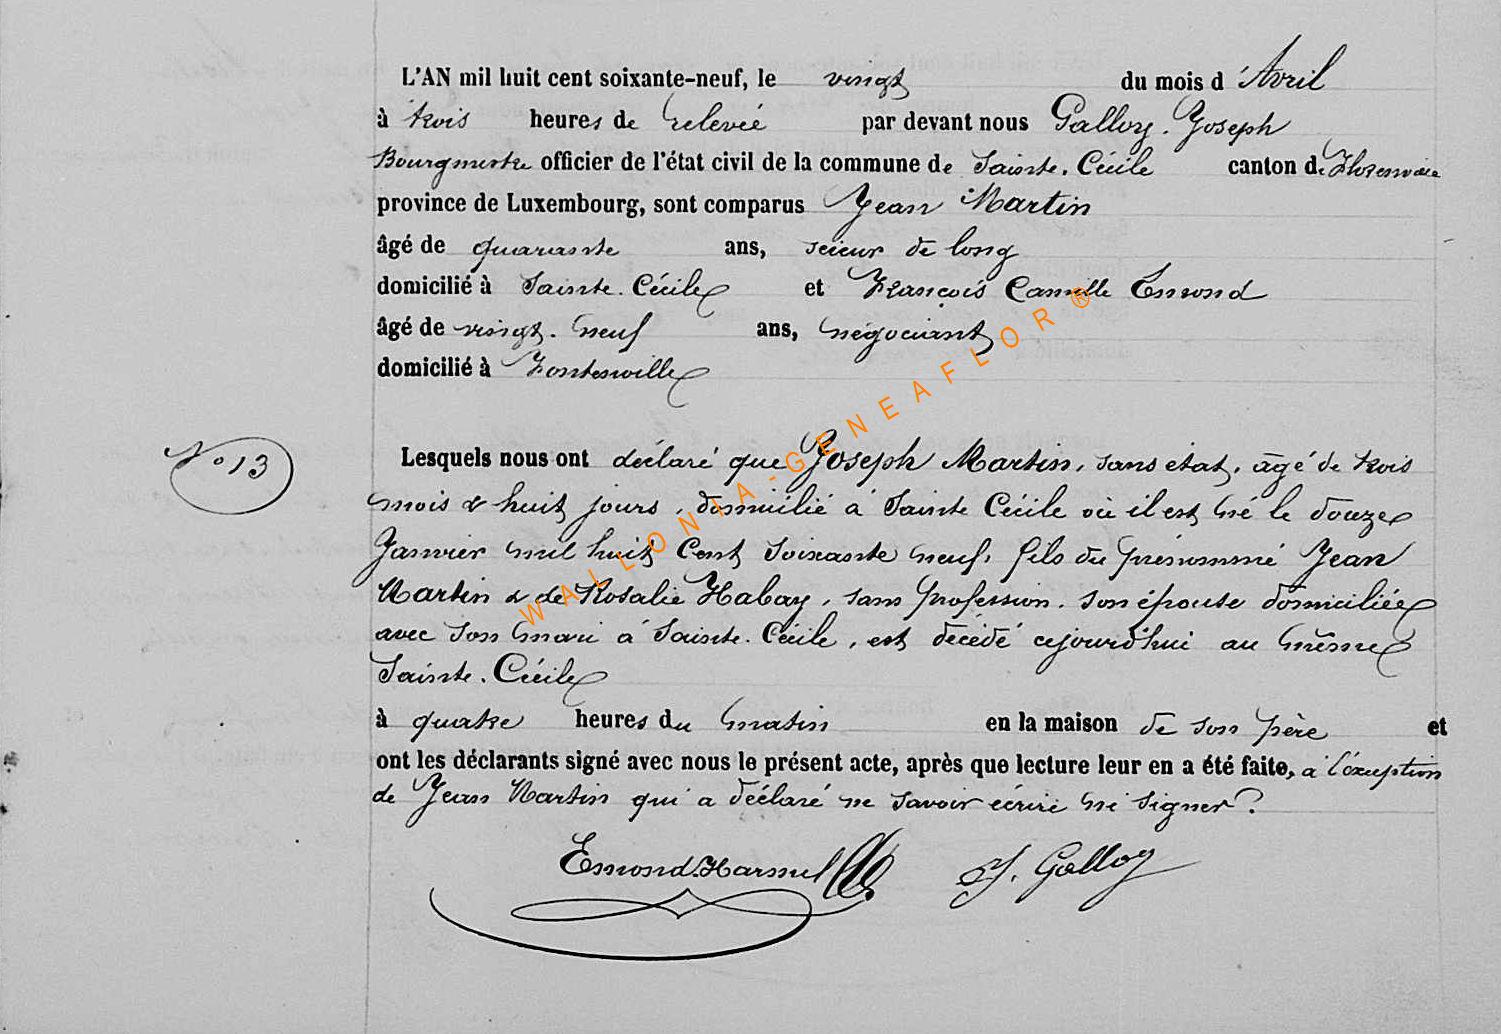 L'AN mil huit cent soixante-neuf, le vingt du mois d'Avril
à trois heures de relevée par devant nous Galloy. Joseph
Bourgmestre officier de l'état civil de la commune de Sainte. Cécile canton de Florenville
province de Luxembourg, sont comparus Jean Martin
âgé de quarante ans, scieur de long
domicilié à Sainte. Cécile et François Camille Emond
âgé de vingt. neuf ans, négociant
domicilié à Fontenoille
N° 13
Lesquels nous ont déclaré que Joseph Martin, sans état, âgé de trois
mois & huit jours, domicilié à Sainte Cécile où il est né le douze
Janvier mil huit Cent Soixante neuf, fils du prénommé Jean
Martin & de Rosalie Habay, sans profession. son épouse domiciliée
avec son mari à Sainte. Cécile, est décédé cejourd'hui au même
Sainte. Cécile
à quatre heures du matin en la maison de son père et
ont les déclarants signé avec nous le présent acte, après que lecture leur en a été faite, à l'exception
de Jean Martin qui a déclaré ne savoir écrire ni signer.
Emond-Harmel J. Galloy
WALLONIA-GENEAFLOR®